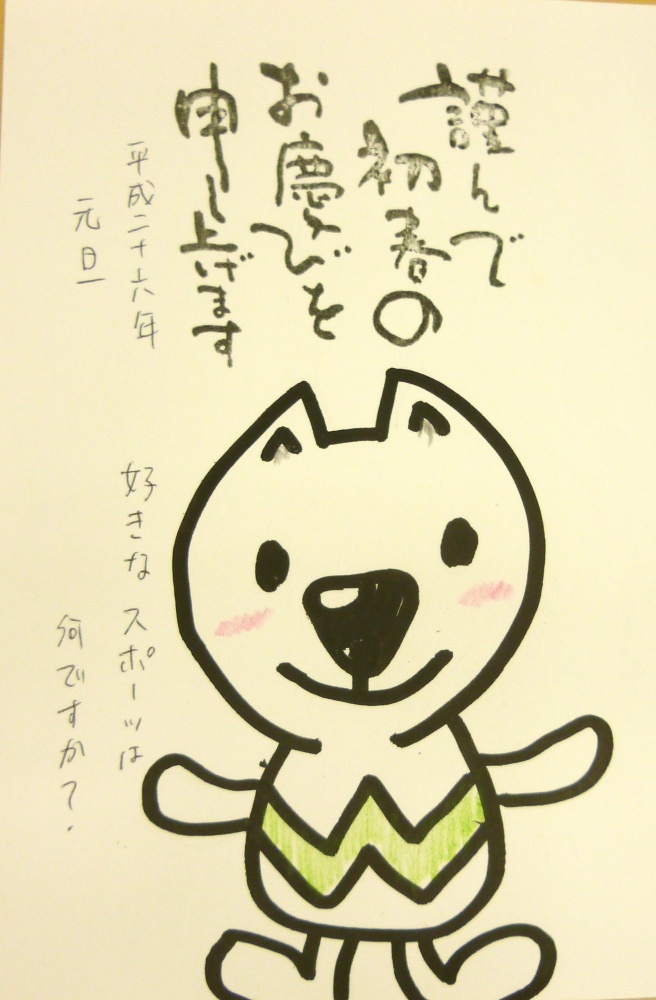 謹んで
初春の
お慶びを
申し上げます
平成二十六年
元旦
好きなスポーツは
何ですか？